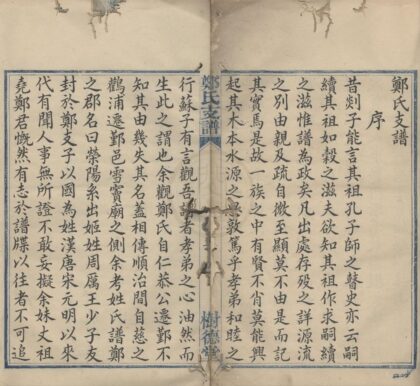 鄭氏支譜
序
昔剡子能言其祖孔子師之瞽史亦云嗣
續其祖如穀之滋夫欲知其祖作求嗣續
之滋惟譜為政矣凡出處存歿之詳源流
之別由親及疏自微至顯莫不由是而記
其實焉是故一族之中有賢不肖莫能興
起其木本水源之思敦篤乎孝弟和睦之
鄭氏支譜
樹德堂
行蘇子有言觀吾譜者孝弟之心油然而
生此之謂也余觀鄭氏自仁恭公遷鄞不
知其由幾失其名蓋相傳順治間自慈之
鸛浦遷鄞邑雩寶廟之側余考姓氏譜鄭
之郡名曰滎陽系出姬姓周厲王少子友
封於鄭支子以國為姓漢唐宋元明以來
代有聞人事無所證不敢妄擬余妹丈祖
堯鄭君慨然有志於譜牒以往者不可追